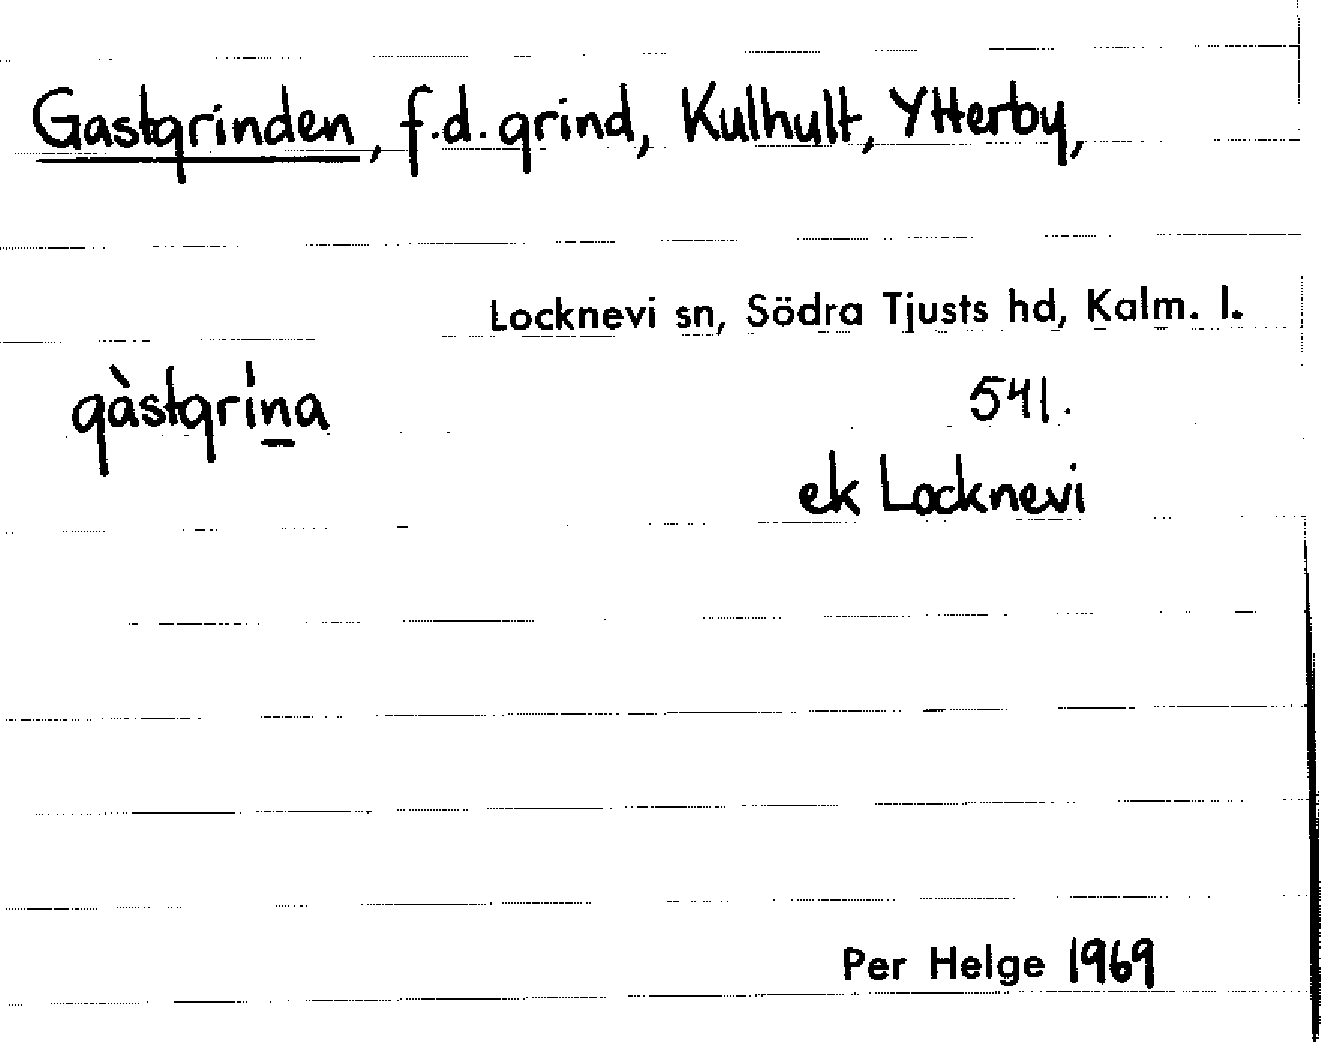 Gastgrinden, f.d. grind, Kulhult, Ytterby,
Locknevi sn, Södra Tjusts hd, Kalm. l.
gàstgrìṉa
541.
ek Locknevi
Per Helge 1969